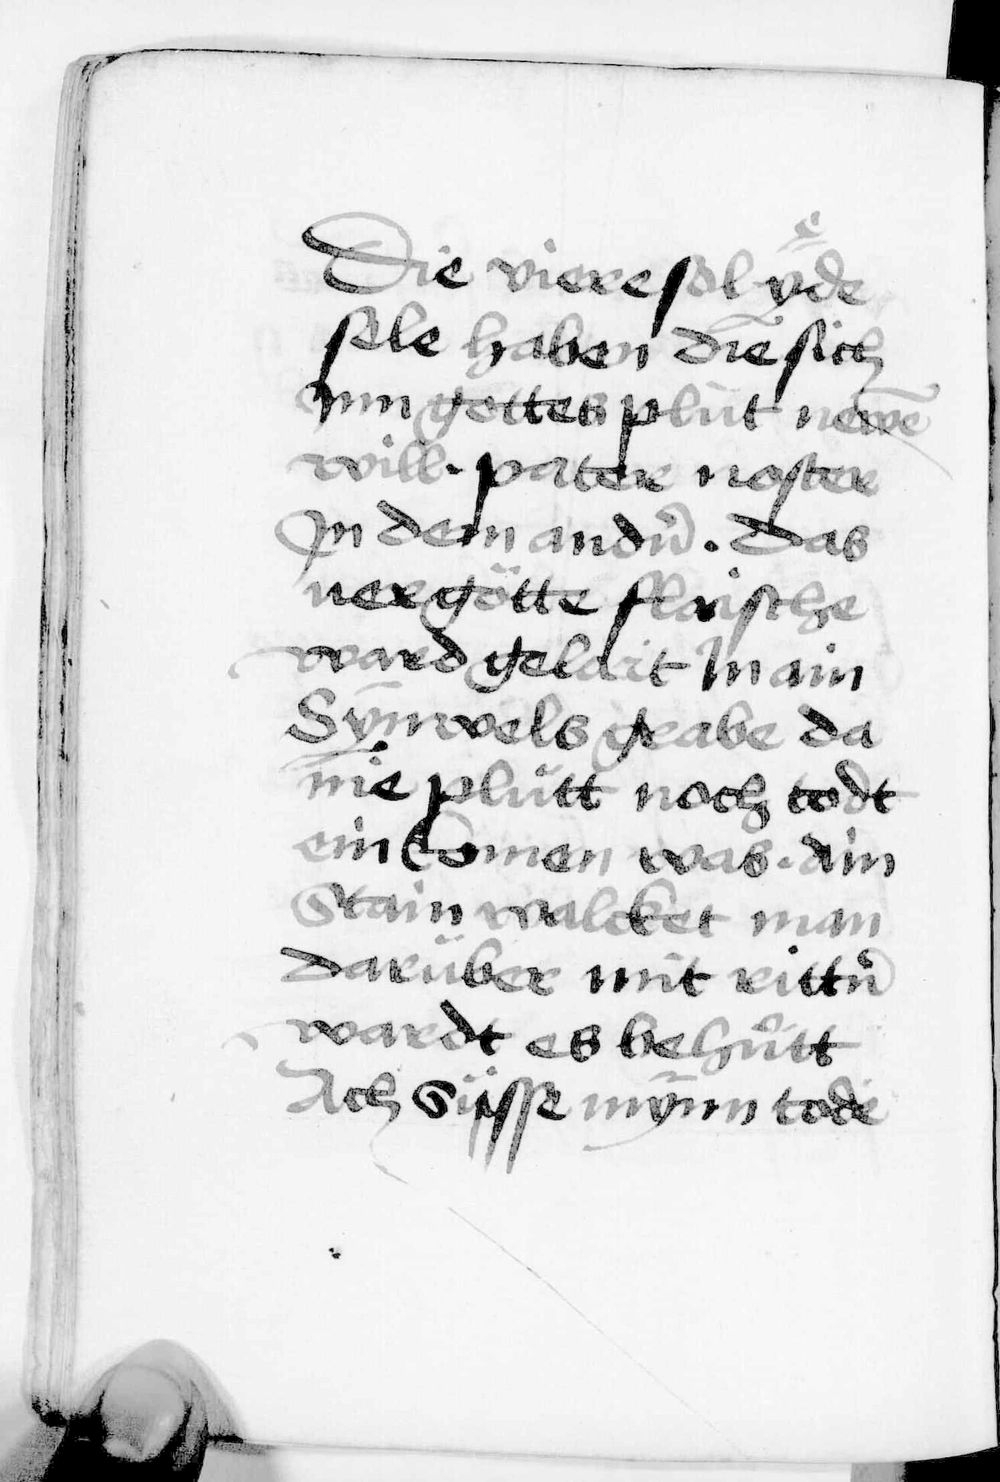 Die viere sol yͤde
sele haben die sich
inn gottes plut newē
will. pater noster
In dem andn̄. Das
vergötte fflaische
ward gelait In ain
Synwels grabe da
nie plůtt noch todt
ein komen was. ain
Stain walcket man
darüber mit rittn̄
wardt es behůtt
Ach Süsse mynn tode